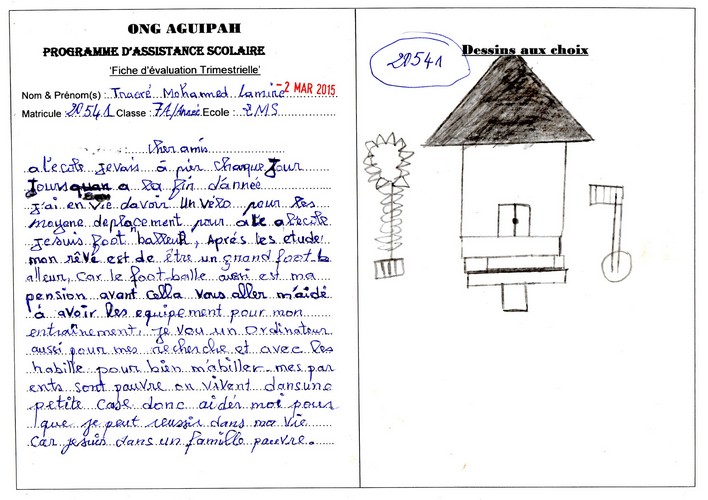 ONG AGUIPAH
PROGRAMME D'ASSISTANCE SCOLAIRE
'Fiche d'évaluation Trimestrielle'
-2 MAR 2015
Nom & Prénom(s) : Traoré Mohamed Lamine
Matricule 20541 Classe : 7A/Année Ecole : EMS
cher amis
a l'ecole je vais à pier chaque Jour
Jours quan a la fin d'année
j'ai en vie d'avoir un vélo pour les
moyane deplacement pour alle a l'ecole
je suis foot balleur, Aprés les etude
mon rêvé est de être un grand foot b
alleur, car le foot balle aussi est ma
pension avant cella vous aller m'aidé
à avoir les equipement pour mon
entraînement, je vou un ordinateur
aussi pour mes recherche et avec les
habille pour bien m'abiller. mes par
ents sont pauvre on vivent dans une
petite case donc aidés moi pour
que je peut reussir dans ma vie
car je suis dans un famille pauvre.
20541
Dessins aux choix